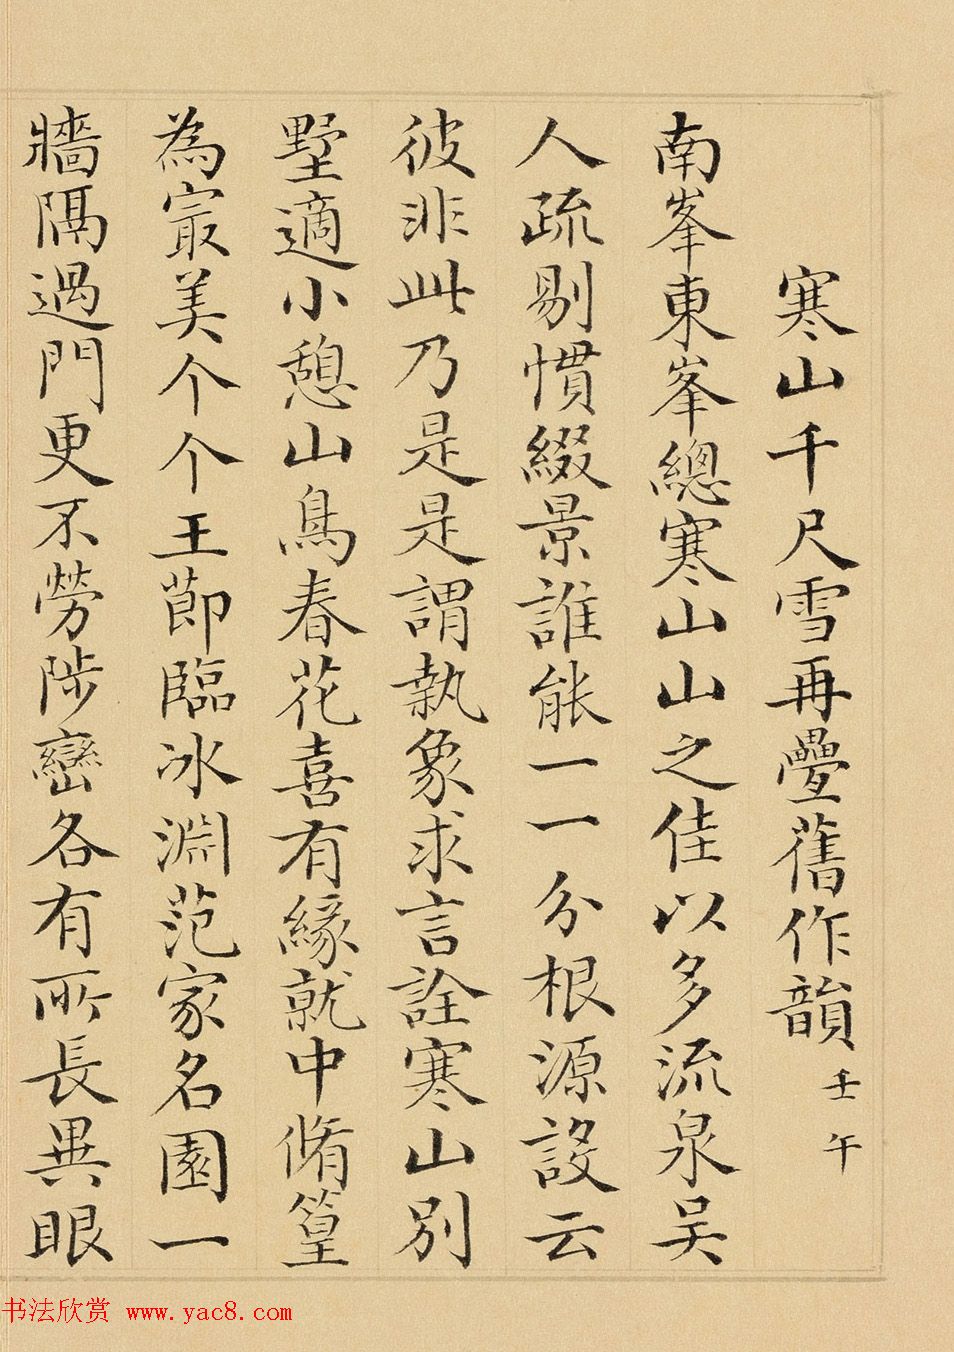 寒山千尺雪再疊舊作韻壬午
南峯東峯總寒山山之佳以多流泉吴
人疏剔慣綴景誰能一一分根源設云
彼非此乃是是謂執象求言詮寒山別
墅適小憩山鳥春花喜有緣就中脩篁
為㝡美个个王莭臨冰淵范家名園一
牆隔過門更不勞陟巒各有所長異眼
书法欣赏 www.yac8.com